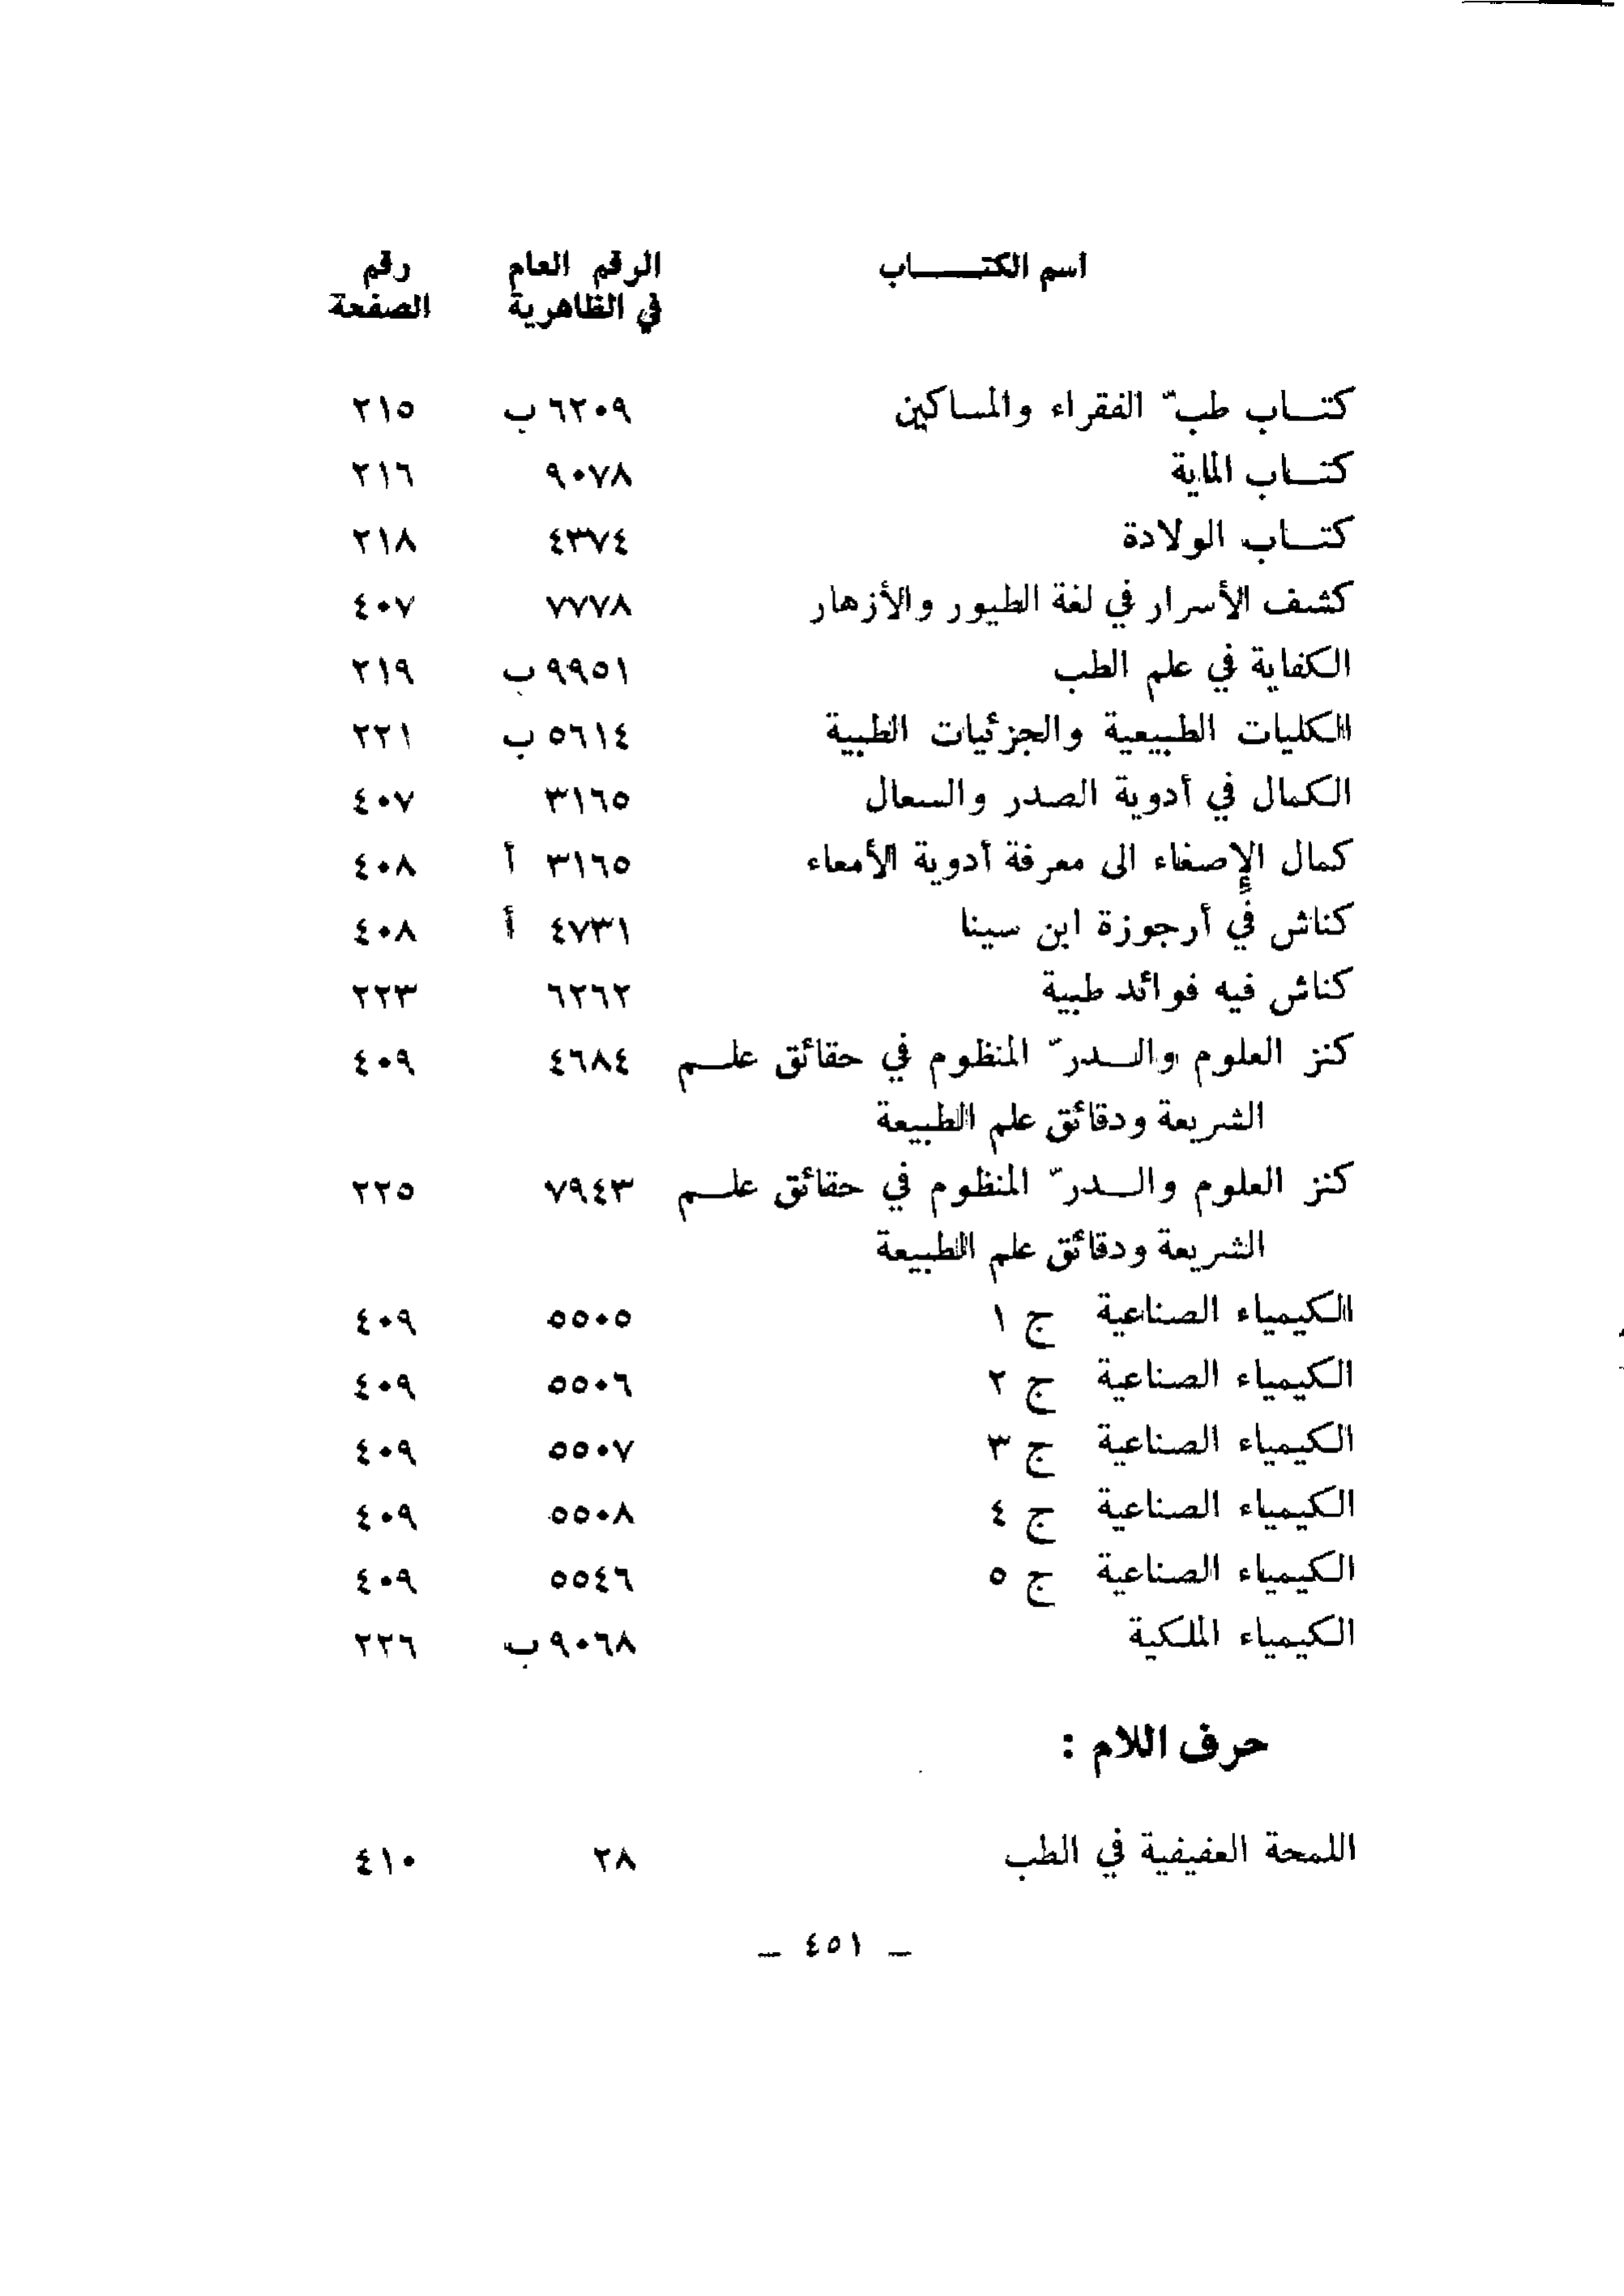 اسم الكتـــاب الرقم العام رقم
في الظاهرية الصفحة
كتــاب طبّ الفقراء والمساكين ٦٢٠٩ ب ٢١٥
كتــاب الماية ٩٠٧٨ ٢١٦
كتــاب الولادة ٤٣٧٤ ٢١٨
كشف الأسرار في لغة الطيور والأزهار ٧٧٧٨ ٤٠٧
الكفاية في علم الطب ٩٩٥١ ب ٢١٩
الكليات الطبيعية والجزئيات الطبية ٥٦١٤ ب ٢٢١
الكمال في أدوية الصدر والسعال ٣١٦٥ ٤٠٧
كمال الإصغاء الى معرفة أدوية الأمعاء ٣١٦٥ أ ٤٠٨
كناش في أرجوزة ابن سينا ٤٧٣١ أ ٤٠٨
كناش فيه فوائد طبية ٦٢٦٢ ٢٢٣
كنز العلوم والــدرّ المنظوم في حقائق علــم ٤٦٨٤ ٤٠٩
الشريعة ودقائق علم الطبيعة
كنز العلوم والــدرّ المنظوم في حقائق علــم ٧٩٤٣ ٢٢٥
الشريعة ودقائق علم الطبيعة
الكيمياء الصناعية ج ١ ٥٥٠٥ ٤٠٩
الكيمياء الصناعية ج ٢ ٥٥٠٦ ٤٠٩
الكيمياء الصناعية ج ٣ ٥٥٠٧ ٤٠٩
الكيمياء الصناعية ج ٤ ٥٥٠٨ ٤٠٩
الكيمياء الصناعية ج ٥ ٥٥٤٦ ٤٠٩
الكيمياء الملكية ٩٠٦٨ ب ٢٢٦
حرف اللام :
اللمحة العفيفية في الطب ٢٨ ٤١٠
ـ ٤٥١ ـ